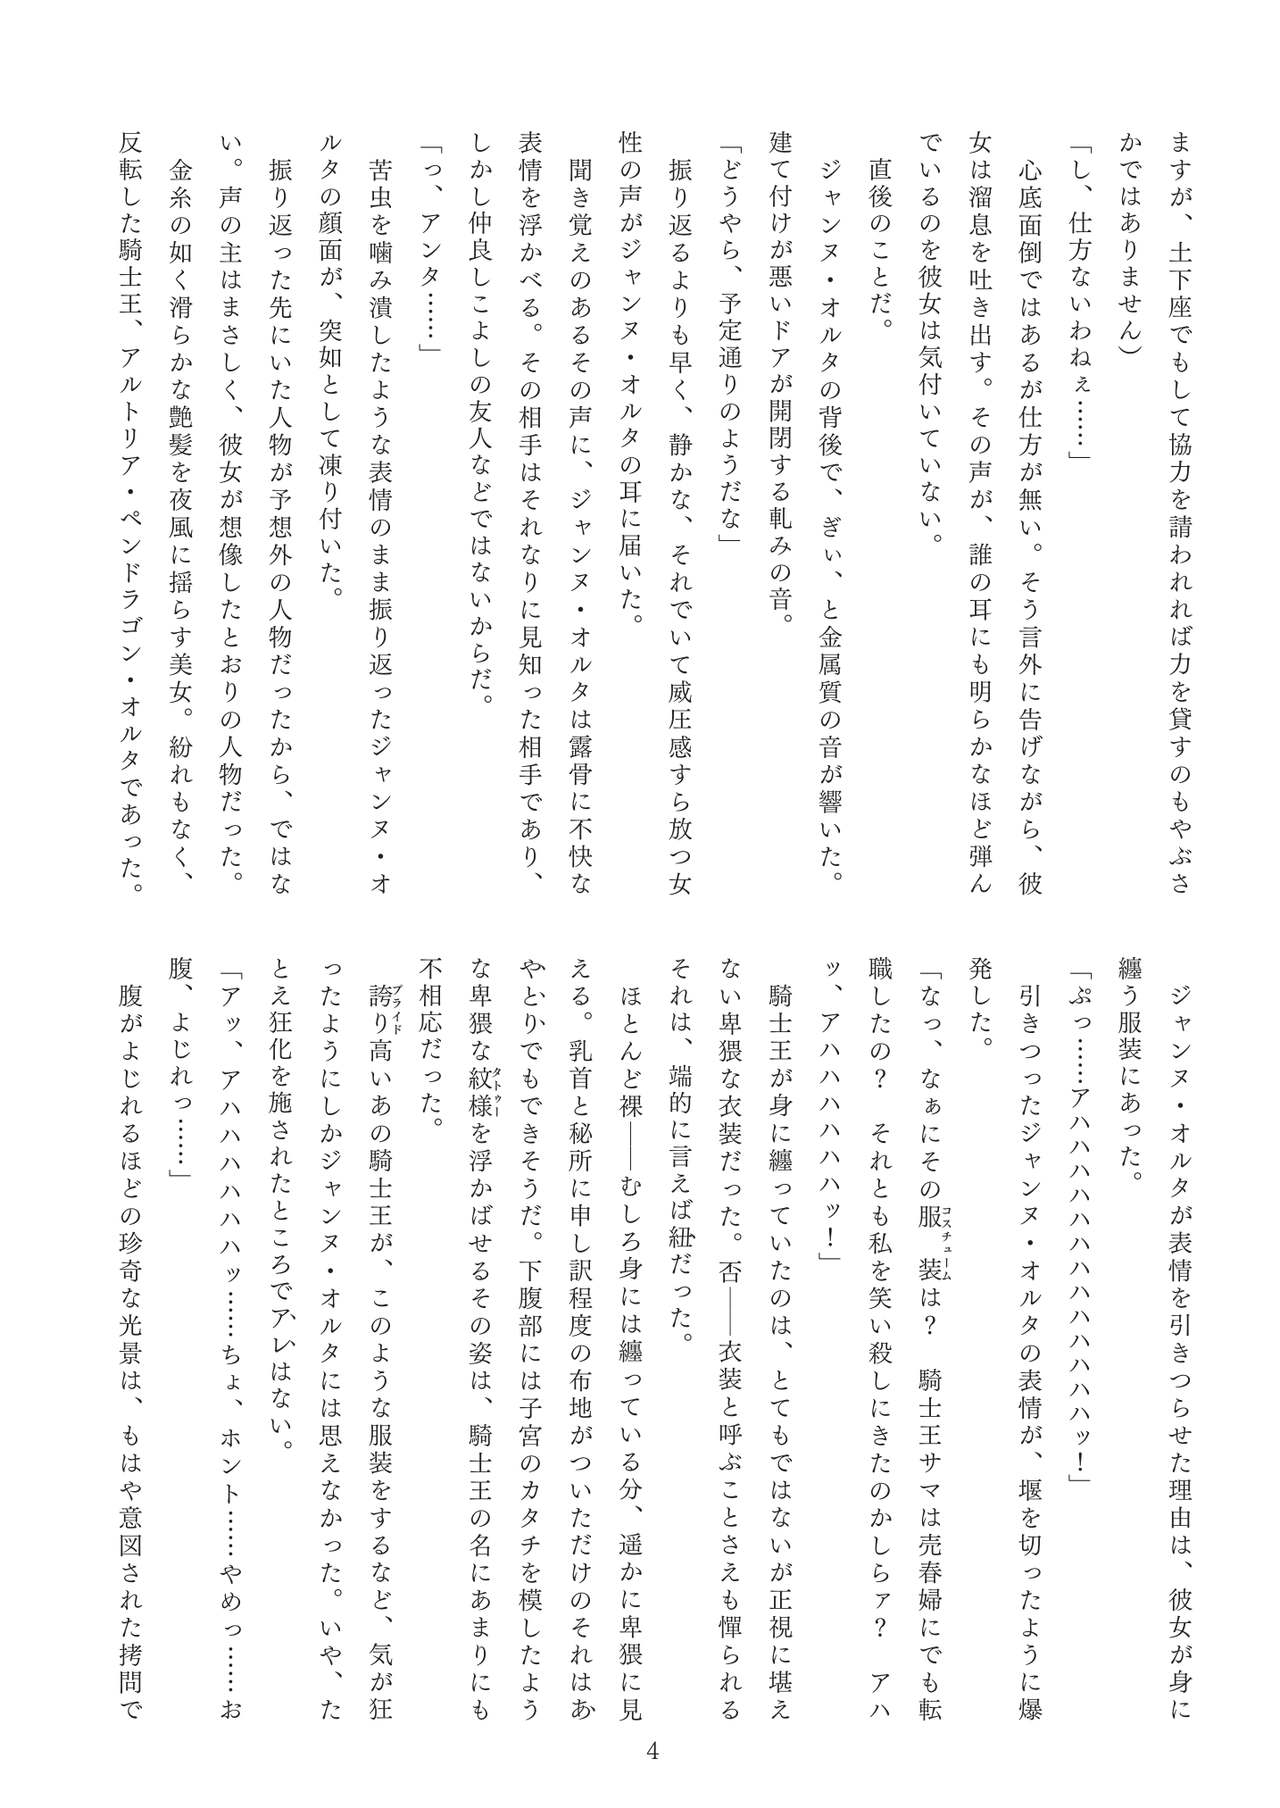 ますが、土下座でもして協力を請われれば力を貸すのもやぶさ
かではありません）
「し、仕方ないわねぇ……」
　心底面倒ではあるが仕方が無い。そう言外に告げながら、彼
女は溜息を吐き出す。その声が、誰の耳にも明らかなほど弾ん
でいるのを彼女は気付いていない。
　直後のことだ。
　ジャンヌ・オルタの背後で、ぎぃ、と金属質の音が響いた。
建て付けが悪いドアが開閉する軋みの音。
「どうやら、予定通りのようだな」
　振り返るよりも早く、静かな、それでいて威圧感すら放つ女
性の声がジャンヌ・オルタの耳に届いた。
　聞き覚えのあるその声に、ジャンヌ・オルタは露骨に不快な
表情を浮かべる。その相手はそれなりに見知った相手であり、
しかし仲良しこよしの友人などではないからだ。
「っ、アンタ……」
　苦虫を噛み潰したような表情のまま振り返ったジャンヌ・オ
ルタの顔面が、突如として凍り付いた。
　振り返った先にいた人物が予想外の人物だったから、ではな
い。声の主はまさしく、彼女が想像したとおりの人物だった。
　金糸の如く滑らかな艶髪を夜風に揺らす美女。紛れもなく、
反転した騎士王、アルトリア・ペンドラゴン・オルタであった。
　ジャンヌ・オルタが表情を引きつらせた理由は、彼女が身に
纏う服装にあった。
「ぷっ……アハハハハハハハハハハハハハッ！」
　引きつったジャンヌ・オルタの表情が、堰を切ったように爆
発した。
「なっ、なぁにその服装コスチュームは？　騎士王サマは売春婦にでも転
職したの？　それとも私を笑い殺しにきたのかしらァ？　アハ
ッ、アハハハハハハッ！」
　騎士王が身に纏っていたのは、とてもではないが正視に堪え
ない卑猥な衣装だった。否――衣装と呼ぶことさえも憚られる
それは、端的に言えば紐だった。
　ほとんど裸――むしろ身には纏っている分、遥かに卑猥に見
える。乳首と秘所に申し訳程度の布地がついただけのそれはあ
やとりでもできそうだ。下腹部には子宮のカタチを模したよう
な卑猥な紋様タトゥーを浮かばせるその姿は、騎士王の名にあまりにも
不相応だった。
　誇りプライド高いあの騎士王が、このような服装をするなど、気が狂
ったようにしかジャンヌ・オルタには思えなかった。いや、た
とえ狂化を施されたところでアレはない。
「アッ、アハハハハハハッ……ちょ、ホント……やめっ……お
腹、よじれっ……」
　腹がよじれるほどの珍奇な光景は、もはや意図された拷問で
4